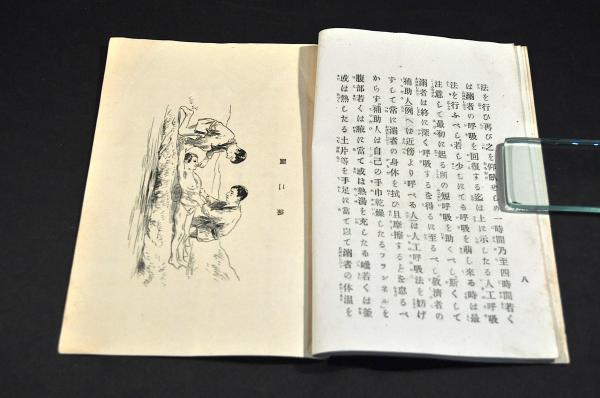 法を行ひ再び之を仰臥せしめ一時間乃至四時間若く
は溺者の呼吸を回復する迄は上に示したる人工呼吸
法を行ふべし若し少しにても呼吸を萠し来る時は最
注意して最初に起る所の短呼吸を助くべし斯くして
溺者は終に深く呼吸するを得るに至るべし救済者の
補助人(例へば近傍より呼べる人)は人工呼吸法を妨げ
ずして常に溺者の身体を拭ひ且摩擦することを怠るべ
からず補助人は自己の手巾乾燥したるフランネルを
腹部若くは腕に当て或は熱湯を充したる壜若くは釜
或は熱したる土片等を手足に当て以て溺者の体温を
八
第二圖